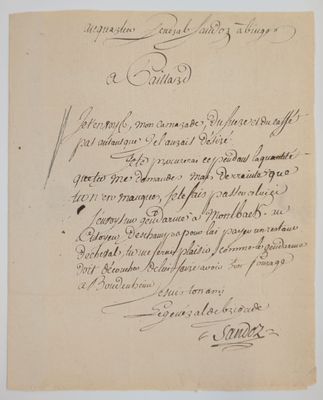 au quartier General Sandoz a bingen
a Caillard
Je t'envoye, mon camarade, du sucre et du caffé
pas autant que j'el aurais désiré
Je te procurerai cependant la quantité
que tu me demande mais de crainte que
tu n'en manque, je te fais passer celui ci
J'envoye un gendarme a Mombach au
Citoyen Deschamps pour lui payer un
de cheval, tu me feras plaisir comme le gendarme
doit découcher de lui faire avoir son fourage
a Boudenheim
Je suis ton ami
Le général de brigade
Sandoz